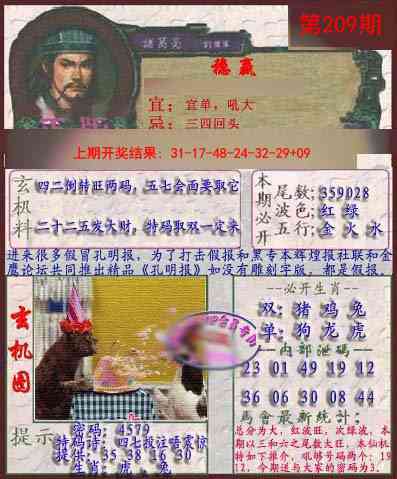 第209期
諸葛亮
穩贏
宜：宜单，吼大
忌：三四回头
上期开奖结果：31-17-48-24-32-29+09
玄机料
四二倒转旺两码，五七会画要取它
二十二五发大财，特码取双一定来
本期必开
尾数;359028
波色;红 绿
五行;金 火 水
进来很多假冒孔明报，为了打击假报和黑专本辉煌报社联和金
鹰论坛共同推出精品《孔明报》如没有雕刻字版，都是假报。
玄机图
--必开生肖--
双:猪 鸡 兔
单:狗 龙 虎
--内部泄码--
23 01 49 19 12
36 06 30 08 44
馬會最新統計:
总分为大，红波旺，次绿波，本
期以三和六之尾数大旺，本仙机
特如下推介，吼够号码两个：19
12，今期送与大家的密码为3.
提示
密码：4579
特码诗：四七投注唔震惊
提供：35 38 16 30
生肖：虎、兔